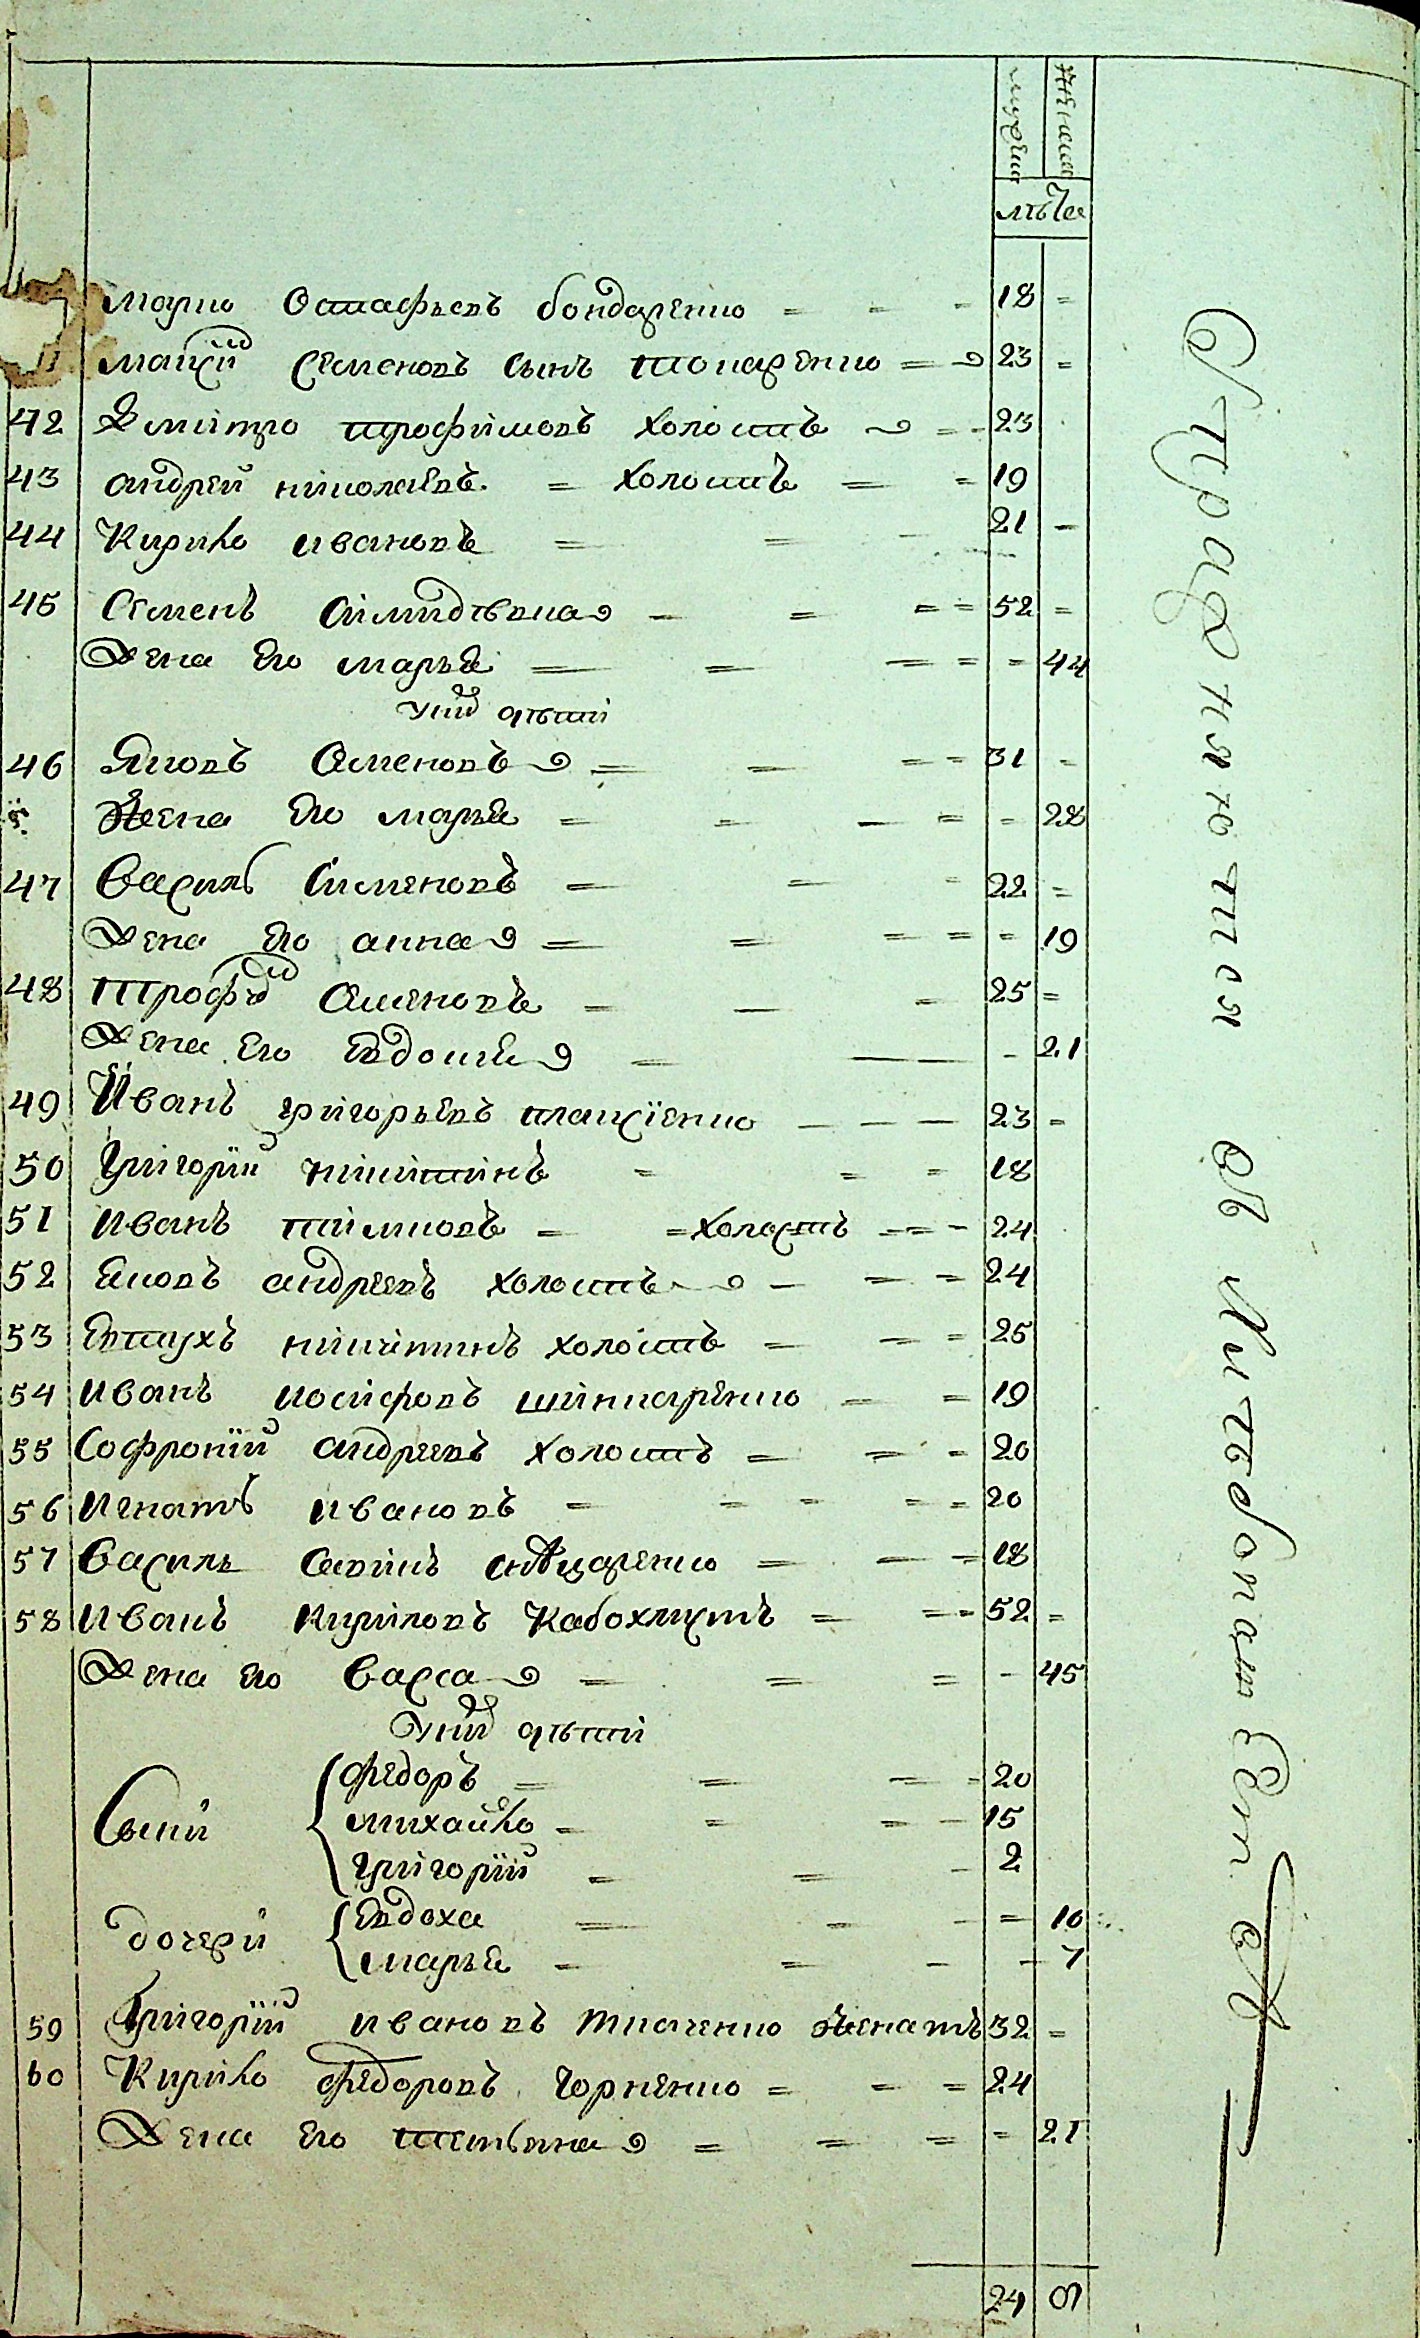 мужеска
женска
лѣта
Марко Остафьевъ бондаренко 18
Мацкий Семеновъ сынъ токаренко 23
42 Дмитро трофимовъ холостъ 23
43 андрей николаевъ холостъ 19
44 Кирило ивановъ 21
45 Семенъ 52
Жена его марья 44
у них дѣти
46 Яковъ Семеновъ 31
Жена его марья 28
47 Василь Сименовъ 22
Жена его анна 19
48 Трофим Семеновъ 25
Жена его Евдокия 21
49 Иванъ григорьевъ 23
50 Григорий никитинъ 18
51 иванъ холостъ 24
52 Яковъ андреевъ холостъ 24
53 Евтухъ никитинъ холостъ 25
54 иванъ иосифовъ шинкаренко 19
55 Софроний андреевъ холостъ 20
56 игнатъ ивановъ 20
57 Василь Савинъ 18
58 иванъ Кириловъ 52
Жена его Васса 45
у них дѣти
Сыни
федоръ 20
михайло 15
григорий 2
дочери
Евдоха 10
марья 7
59 Григорий ивановъ ткаченко женатъ 32
60 Кирило федоровъ 24
Жена его татьяна 21
24 9